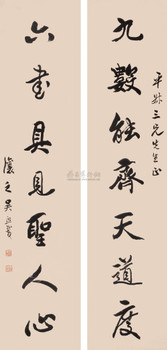 九數能齊天道度
六書具見聖人心
三兄先生正
讓之吳熙載